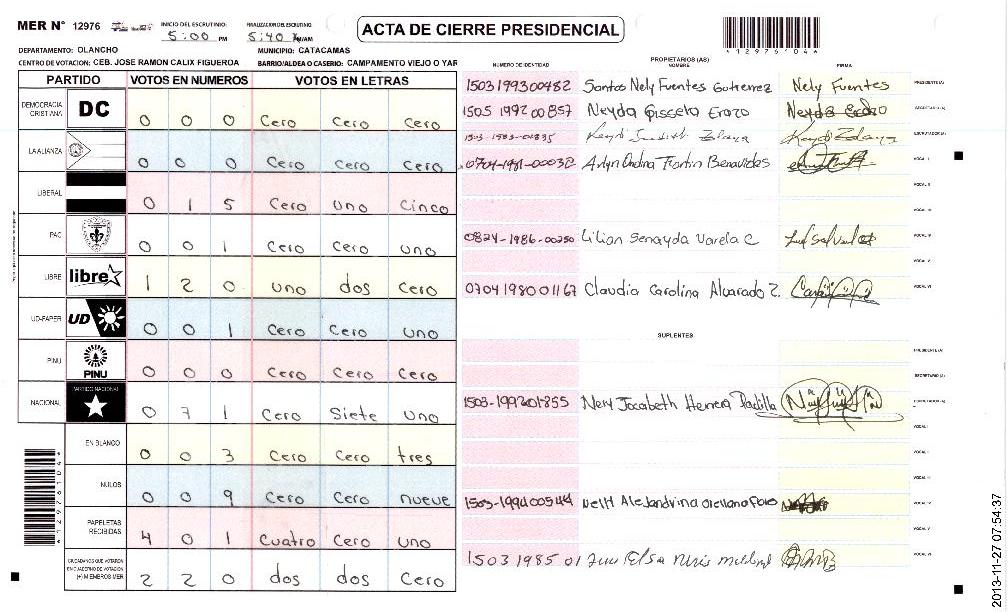 MER N° 12976
INICIO DEL ESCRUTINIO: 5:00 PM
FINALIZACION DEL ESCRUTINIO: 5:40 AM
ACTA DE CIERRE PRESIDENCIAL
*1297610 4*
DEPARTAMENTO: OLANCHO
MUNICIPIO: CATACAMAS
CENTRO DE VOTACION: CEB. JOSE RAMON CALIX FIGUEROA
BARRIO/ALDEA O CASERIO: CAMPAMENTO VIEJO O YAR
PARTIDO VOTOS EN NUMEROS VOTOS EN LETRAS
DEMOCRACIA CRISTIANA DC 0 0 0 Cero Cero Cero
LA ALIANZA 0 0 0 Cero Cero Cero
LIBERAL 0 1 5 Cero uno Cinco
PAC 0 0 1 Cero Cero uno
LIBRE libre 1 2 0 uno dos Cero
UD-FAPER UD 0 0 1 Cero Cero uno
PINU PINU 0 0 0 Cero Cero Cero
NACIONAL PARTIDO NACIONAL 0 7 1 Cero Siete uno
EN BLANCO 0 0 3 Cero Cero tres
NULOS 0 0 9 Cero Cero nueve
PAPELETAS RECIBIDAS 4 0 1 Cuatro Cero uno
CIUDADANOS QUE VOTARON EN CUADERNO DE VOTACION (+) MIEMBROS MER 2 2 0 dos dos Cero
PROPIETARIOS (AS)
NUMERO DE IDENTIDAD NOMBRE FIRMA
1503199300482 Santos Nely Fuentes Gutierrez Nely Fuentes PRESIDENTE (A)
1505 1992 00857 Neyda Gissela Erazo Neyda Erazo SECRETARIO (A)
1503-1983-04835 Keydi Judith Zelaya Keydi Zelaya ESCRUTADOR (A)
0704-1981-00032 Arlyn Ondina Flortin Benavides VOCAL I
VOCAL II
VOCAL III
0824-1986-00250 Lilian Senayda Varela C VOCAL IV
VOCAL V
0704198001167 Claudia Carolina Alvarado Z. VOCAL VI
SUPLENTES
PRESIDENTE (A)
SECRETARIO (A)
1503-199201855 Nery Jacabeth Herrera Padilla ESCRUTADOR (A)
VOCAL I
VOCAL II
VOCAL III
1503-199400544 Alejandrina Orellana VOCAL IV
VOCAL V
1503 1985 01 VOCAL VI
2013-11-27 07:54:37